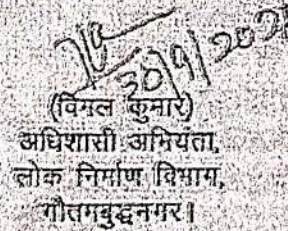 30/9/202
(विमल कुमार)
अधिशासी अभियंता,
लोक निर्माण विभाग,
गौतमबुद्धनगर।